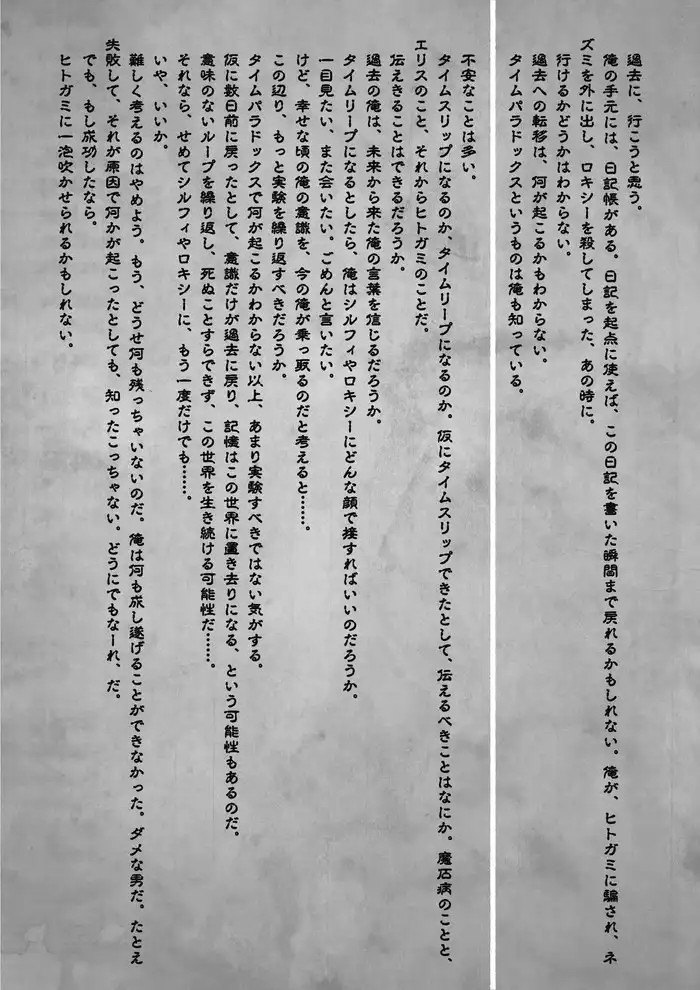 過去に、行こうと思う。
俺の手元には、日記帳がある。日記を起点に使えば、この日記を書いた瞬間まで戻れるかもしれない。俺が、ヒトガミに騙され、ネ
ズミを外に出し、ロキシーを殺してしまった、あの時に。
行けるかどうかはわからない。
過去への転移は、何が起こるかもわからない。
タイムパラドックスというものは俺も知っている。
不安なことは多い。
タイムスリップになるのか、タイムリープになるのか。仮にタイムスリップできたとして、伝えるべきことはなにか。魔石病のことと、
エリスのこと、それからヒトガミのことだ。
伝えきることはできるだろうか。
過去の俺は、未来から来た俺の言葉を信じるだろうか。
タイムリープになるとしたら、俺はシルフィやロキシーにどんな顔で接すればいいのだろうか。
一目見たい、また会いたい。ごめんと言いたい。
けど、幸せな頃の俺の意識を、今の俺が乗っ取るのだと考えると……。
この辺り、もっと実験を繰り返すべきだろうか。
タイムパラドックスで何が起こるかわからない以上、あまり実験すべきではない気がする。
仮に数日前に戻ったとして、意識だけが過去に戻り、記憶はこの世界に置き去りになる、という可能性もあるのだ。
意味のないループを繰り返し、死ぬことすらできず、この世界を生き続ける可能性だ……。
それなら、せめてシルフィやロキシーに、もう一度だけでも……。
いや、いいか。
難しく考えるのはやめよう。もう、どうせ何も残っちゃいないのだ。俺は何も成し遂げることができなかった。ダメな男だ。たとえ
失敗して、それが原因で何かが起こったとしても、知ったこっちゃない。どうにでもなーれ、だ。
でも、もし成功したなら。
ヒトガミに一泡吹かせられるかもしれない。